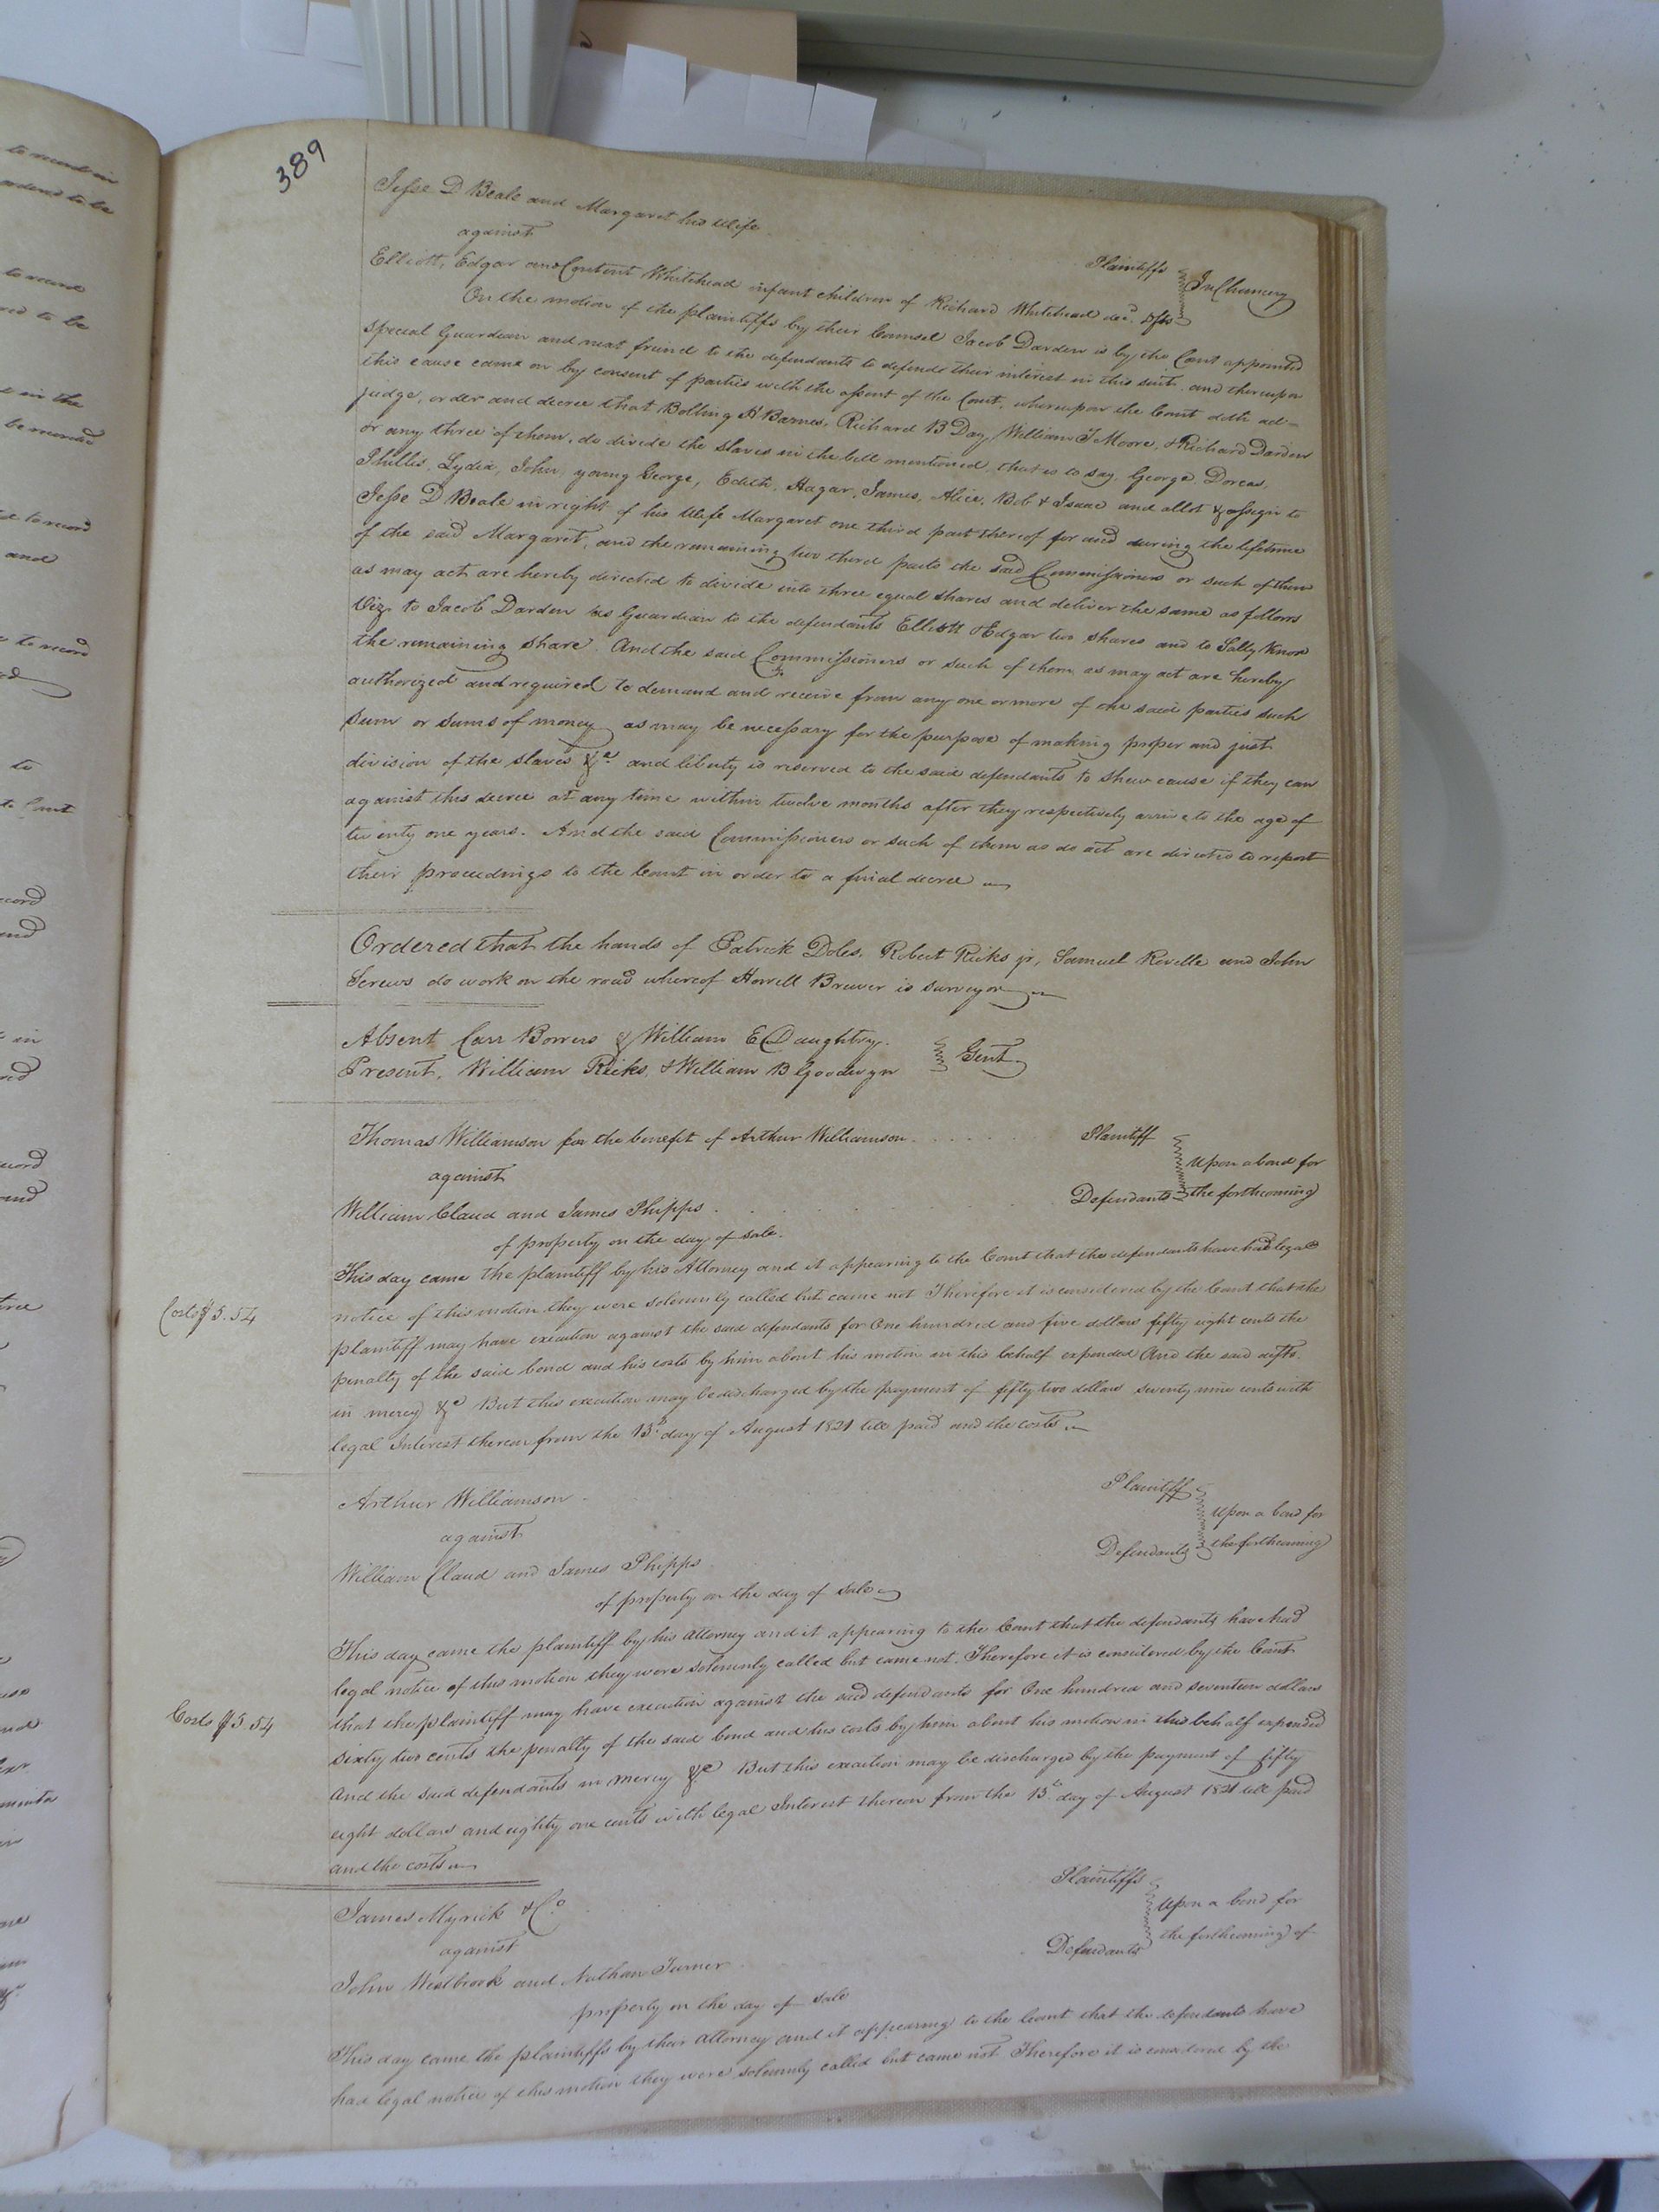 389
Jesse D Beale and Margaret his Wife
against
Plaintiffs
In Chancery
Elliott, Edgar and Content Whitehead infant children of Richard Whitehead decd. Dfts
On the motion of the plaintiffs by their Counsel Jacob Darden is by the Court appointed
special Guardian and next friend to the defendants to defend their interest in this suit. and thereupon
this cause came on by consent of parties with the assent of the Court, whereupon the Court doth ad-
judge, order and decree that Bolling H Barnes, Richard B Day, William T Moore, & Richard Darden
or any three of them, do divide the slaves in the bill mentioned, that is to say, George, Dorcas,
Phillis, Lydia, John, young George, Edith, Hagar, James, Alice, Bob & Isaac and allot & assign to
Jesse D Beale in right of his Wife Margaret one third part thereof for and during the lifetime
of the said Margaret, and the remaining two third parts the said Commissioners or such of them
as may act are hereby directed to divide into three equal shares and deliver the same as follows
Viz. to Jacob Darden as Guardian to the defendants Elliott & Edgar two shares and to Sally Knox
the remaining share. And the said Commissioners or such of them as may act are hereby
authorized and required to demand and receive from any one or more of the said parties such
sum or sums of money as may be necessary for the purpose of making proper and just
division of the slaves &c. and liberty is reserved to the said defendants to shew cause if they can
against this decree at any time within twelve months after they respectively arrive to the age of
twenty one years. And the said Commissioners or such of them as do act are directed to report
their proceedings to the Court in order to a final decree
Ordered that the hands of Patrick Doles, Robert Ricks jr, Samuel Revelle and John
Screws do work on the road whereof Howell Brewer is surveyor
Absent Carr Bowers & William E Daughtry.
Present, William Ricks, & William B Goodwyn
Gent
Thomas Williamson for the benefit of Arthur Williamson
Plaintiff
against
Upon a bond for
William Claud and James Phipps
Defendants
the forthcoming
of property on the day of sale.
This day came the plaintiff by his Attorney and it appearing to the Court that the defendants have had legal
notice of this motion they were solemnly called but came not Therefore it is considered by the Court that the
Costs $5.54
plaintiff may have execution against the said defendants for One hundred and five dollars fifty eight cents the
penalty of the said bond and his costs by him about his motion in this behalf expended And the said defts.
in mercy &c But this execution may be discharged by the payment of fifty two dollars seventy nine cents with
legal Interest thereon from the 13th day of August 1821 till paid and the costs
Arthur Williamson
Plaintiff
against
Upon a bond for
William Claud and James Phipps
Defendants
the forthcoming
of property on the day of sale
This day came the plaintiff by his Attorney and it appearing to the Court that the defendants have had
legal notice of this motion they were solemnly called but came not. Therefore it is considered by the Court
that the plaintiff may have execution against the said defendants for One hundred and seventeen dollars
Costs $5.54
sixty two cents the penalty of the said bond and his costs by him about his motion in this behalf expended
And the said defendants in mercy &c But this execution may be discharged by the payment of fifty
eight dollars and eighty one cents with legal Interest thereon from the 13th day of August 1821 till paid
and the costs
James Myrick & Co
Plaintiffs
against
Upon a bond for
John Westbrook and Nathan Turner
Defendants
the forthcoming of
property on the day of sale
This day came the plaintiffs by their Attorney and it appearing to the Court that the defendants have
had legal notice of this motion they were solemnly called but came not Therefore it is considered by the